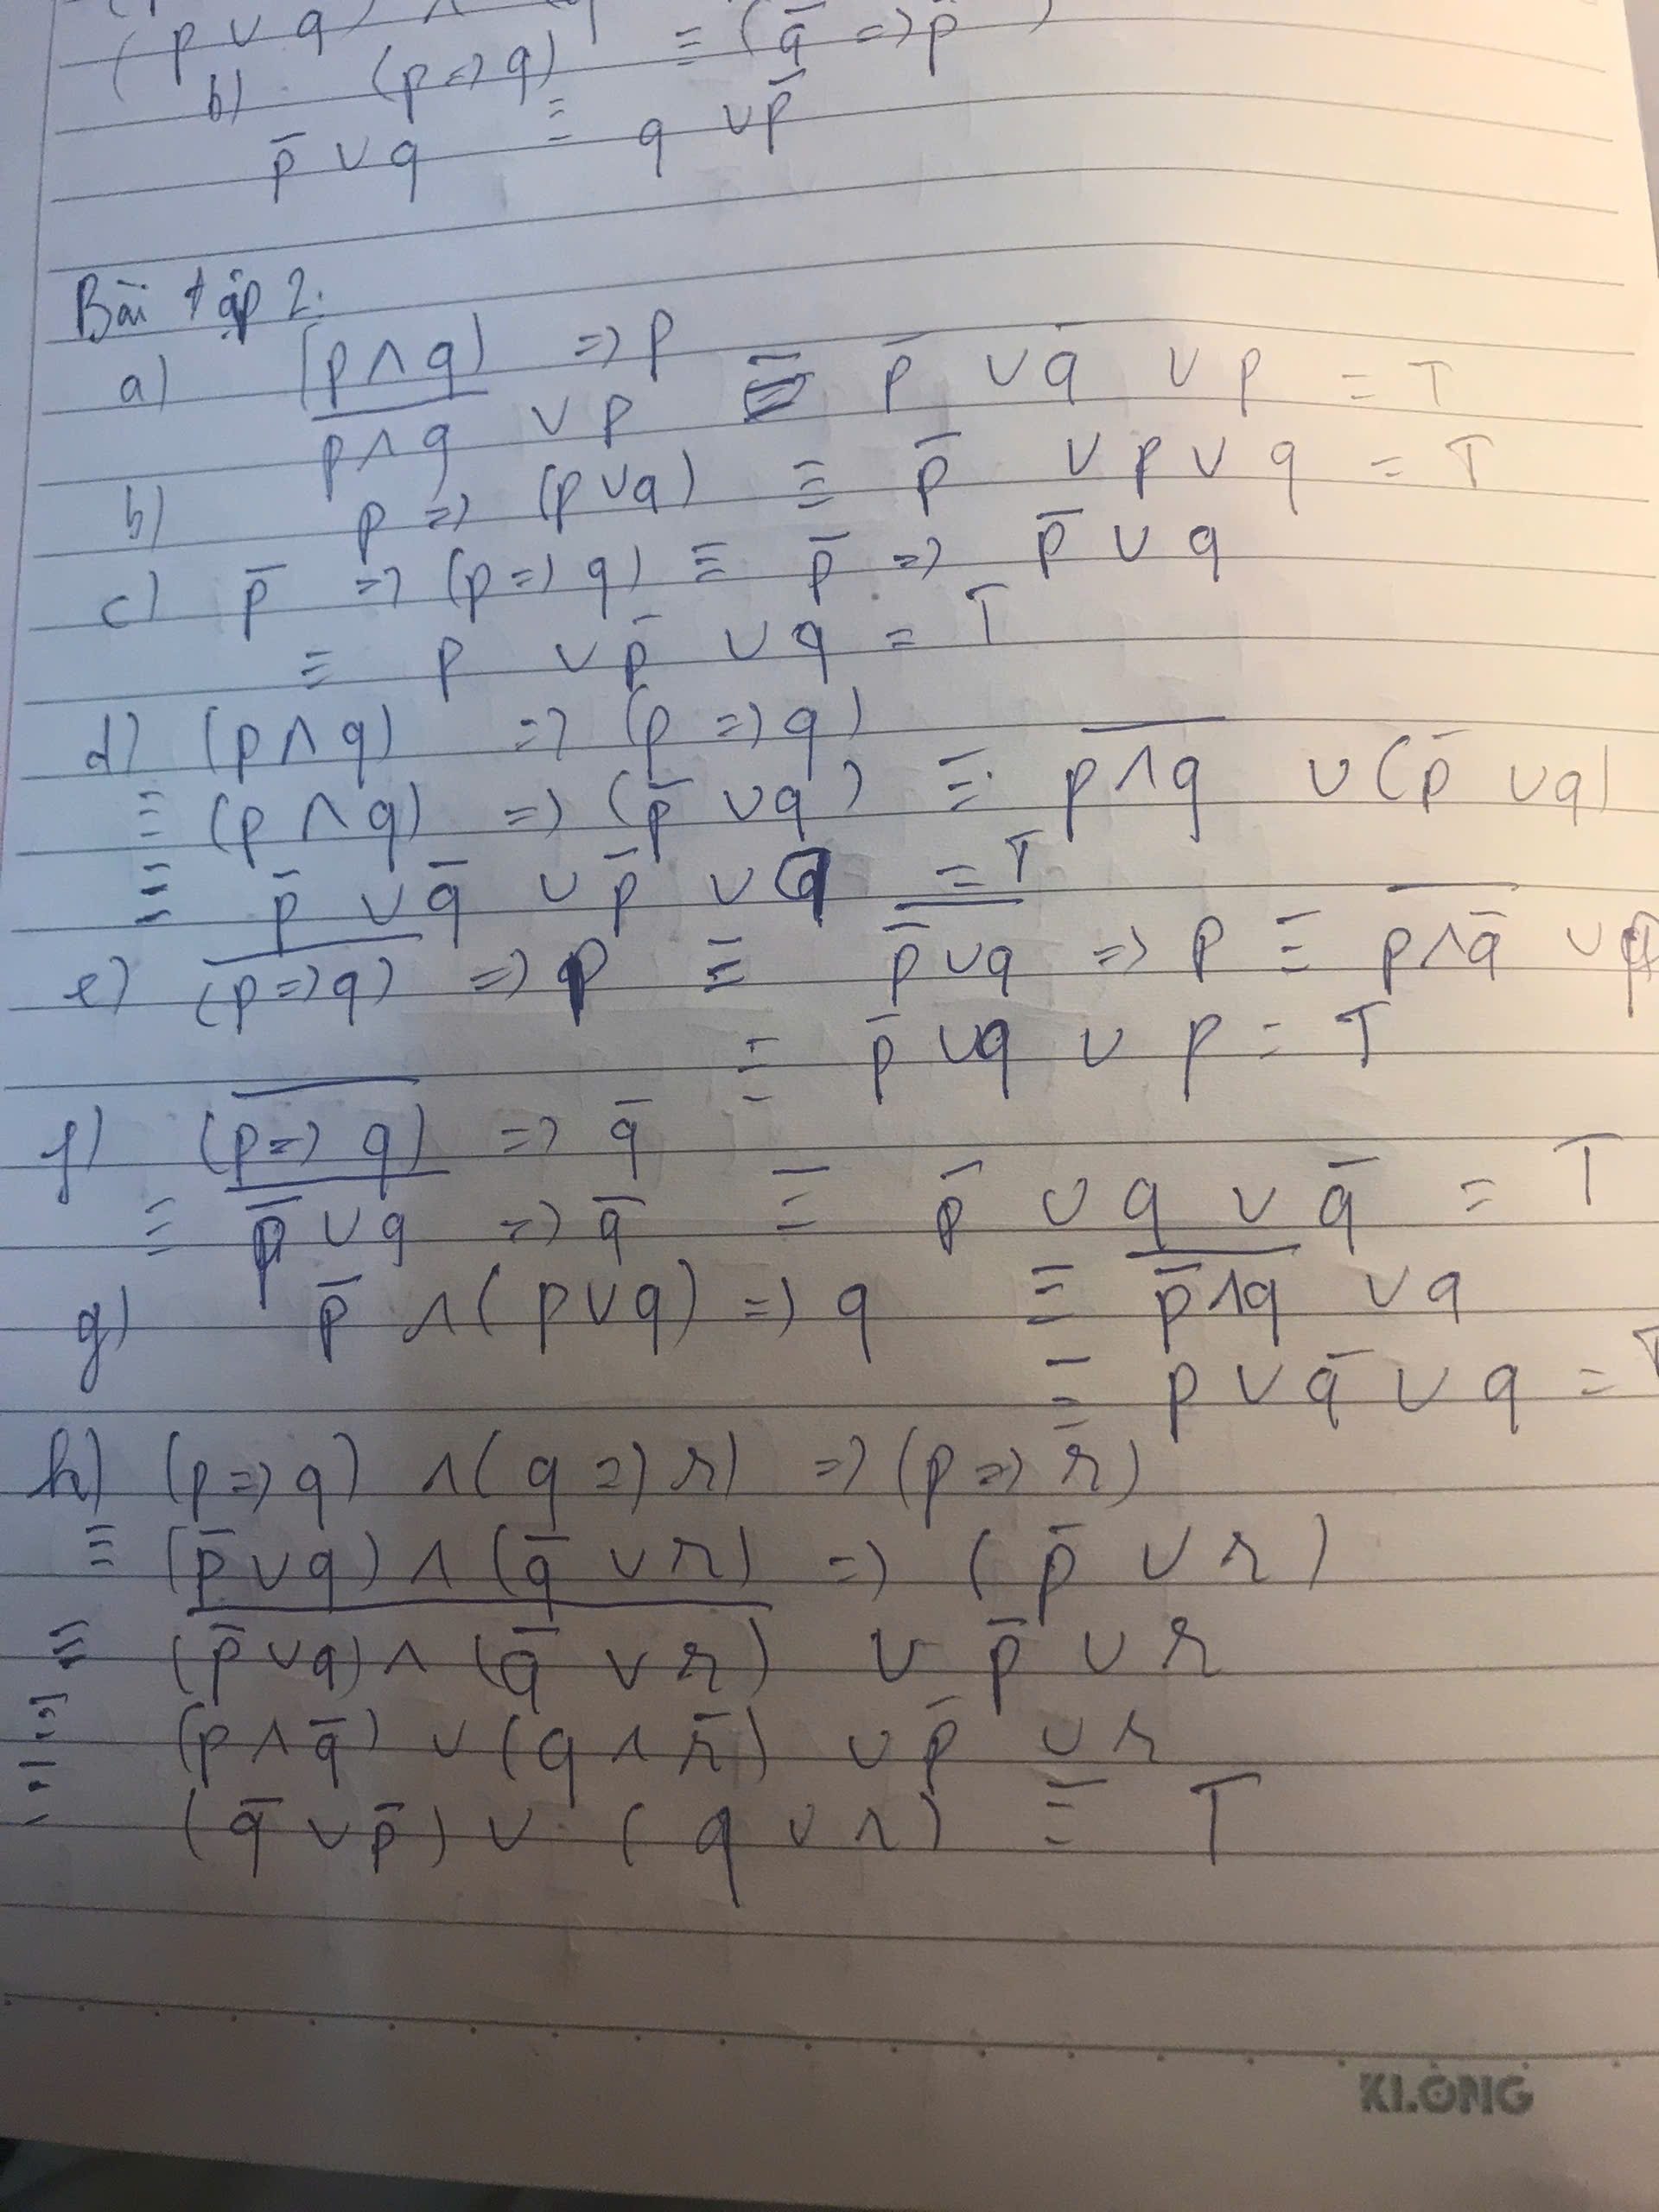 (p ∨ q) ∧
b) (p => q) ≡ (q̄ => p̄)
p̄ ∨ q ≡ q ∨ p̄
Bài tập 2:
a) (p ∧ q) => p
\overline{p ∧ q} ∨ p ≡ p̄ ∨ q̄ ∨ p = T
b) p => (p ∨ q) ≡ p̄ ∨ p ∨ q = T
c) p̄ => (p => q) ≡ p̄ => p̄ ∨ q
≡ p ∨ p̄ ∨ q = T
d) (p ∧ q) => (p => q)
≡ (p ∧ q) => (p̄ ∨ q) ≡ \overline{p ∧ q} ∨ (p̄ ∨ q)
≡ p̄ ∨ q̄ ∨ p̄ ∨ q = T
e) \overline{(p => q)} => p ≡ \overline{p̄ ∨ q} => p ≡ \overline{p ∧ q̄} ∨ p
≡ p̄ ∨ q ∨ p = T
f) \overline{(p => q)} => q̄
≡ \overline{p̄ ∨ q} => q̄ ≡ p̄ ∨ q ∨ q̄ = T
g) p̄ ∧ (p ∨ q) => q ≡ \overline{p̄ ∧ q} ∨ q
≡ p ∨ q̄ ∨ q = T
h) (p => q) ∧ (q => r) => (p => r)
≡ (p̄ ∨ q) ∧ (q̄ ∨ r) => (p̄ ∨ r)
≡ \overline{(p̄ ∨ q) ∧ (q̄ ∨ r)} ∨ p̄ ∨ r
≡ (p ∧ q̄) ∨ (q ∧ r̄) ∨ p̄ ∨ r
≡ (q̄ ∨ p̄) ∨ (q ∨ r) ≡ T
KLONG